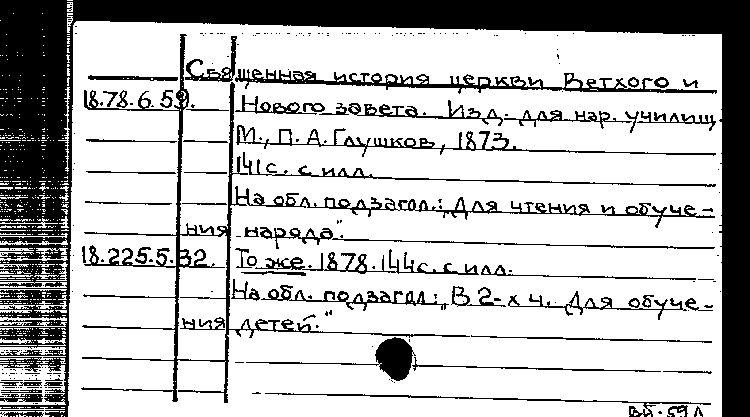 Священная история церкви Ветхого и
18.78.6.53. Нового завета. Изд. для нар. училищ.
М., П. А. Глушков, 1873.
141 с. с илл.
На обл. подзагол.: "Для чтения и обуче-
ния народа".
18.225.5.32. То же. 1878. 144 с. с илл.
На обл. подзагол.: "В 2-х ч. Для обуче-
ния детей."